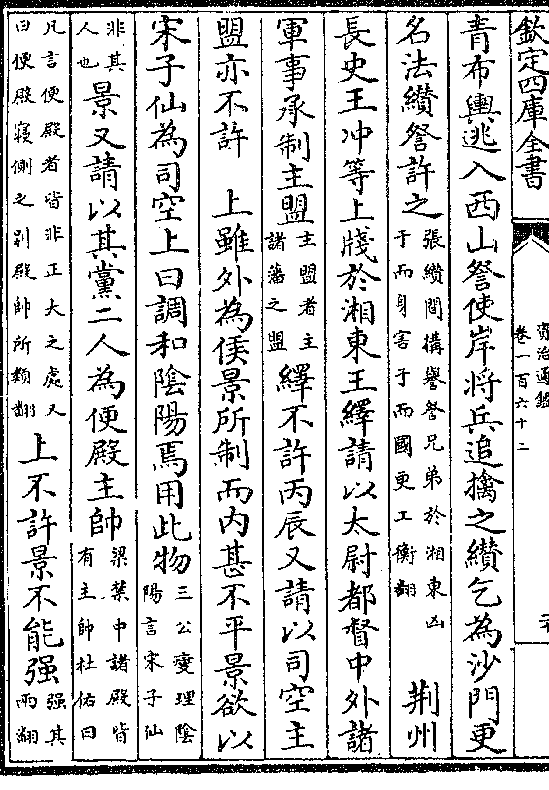 欽定四庫全書
資治通鑑
卷一百六十二
青布輿逃入西山詧使岸將兵追擒之纘乞為沙門更
名法纘詧許之張纘間構譽詧兄弟於湘東凶于而身害于而國更工衡翻 荆州
長史王冲等上牋於湘東王繹請以太尉都督中外諸
軍事承制主盟主盟者主諸藩之盟繹不許丙辰又請以司空主
盟亦不許 上雖外為侯景所制而内甚不平景欲以
宋子仙為司空上曰調和陰陽焉用此物三公燮理陰陽言宋子仙
非其人也景又請以其黨二人為便殿主帥梁禁中諸殿皆有主帥杜佑曰
凡言便殿者皆非正大之處又曰便殿寢側之别殿帥所類翻上不許景不能强强其兩翻